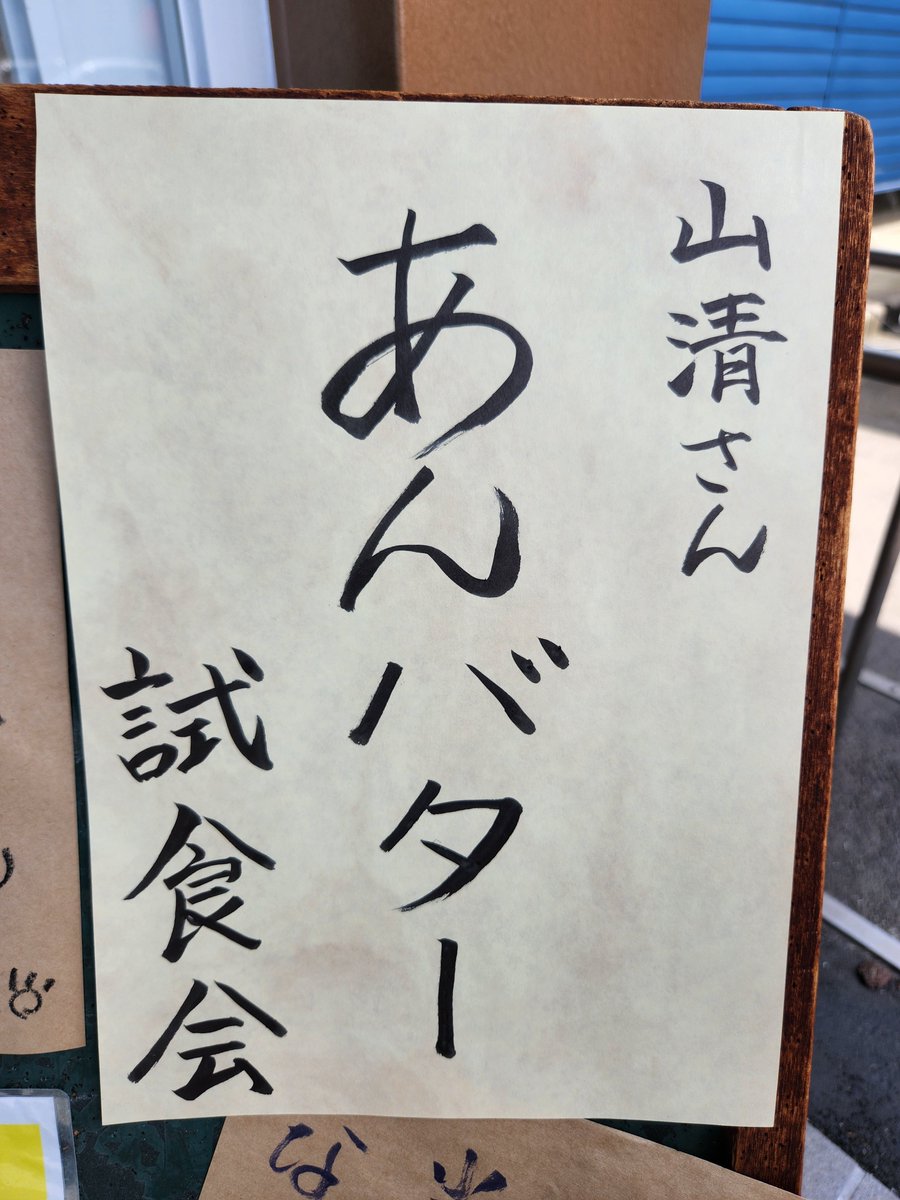 山清さん
あんバター
試食会